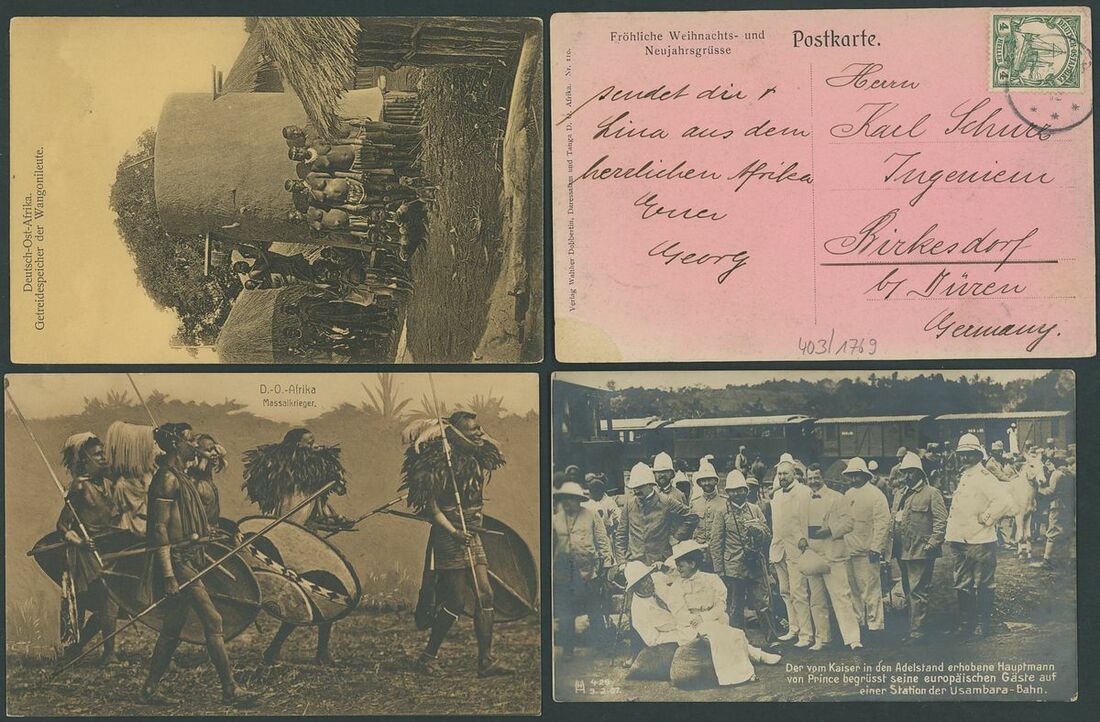 Deutsch-Ost-Afrika.
Getreidespeicher der Wangonileute.
Fröhliche Weihnachts- und
Neujahrsgrüsse
Postkarte.
4 4
sendet die +
Lina aus dem
herrlichen Afrika
Euer
Georg
Herrn
Karl Schulz
Ingenieur
Birkesdorf
b/ Düren
Germany.
Verlag Walther Dobbertin, Daressalam und Tanga D. O. Afrika. Nr. 110.
403/1769
D.-O.-Afrika
Massaikrieger.
Der vom Kaiser in den Adelstand erhobene Hauptmann
von Prince begrüsst seine europäischen Gäste auf
einer Station der Usambara-Bahn.
429
9.2.07.